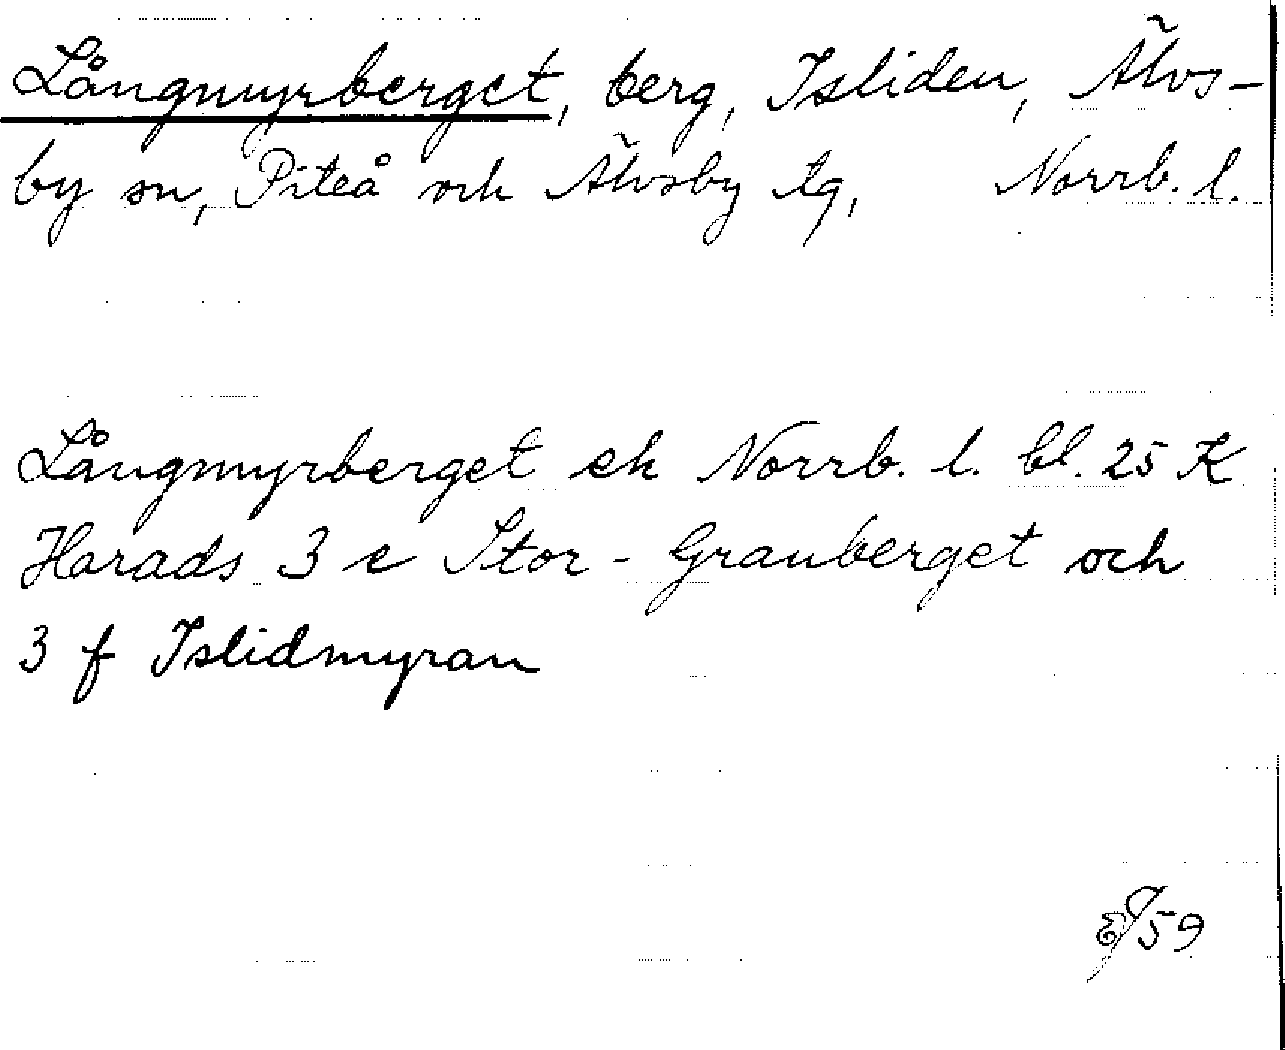 Långmyrberget, berg, Isliden, Älvs-
by sn, Piteå och Älvsby tg, Norrb. l.
Långmyrberget ek Norrb. l. bl. 25 K
Harads 3 e Stor-Granberget och
3 f Islidmyran
59